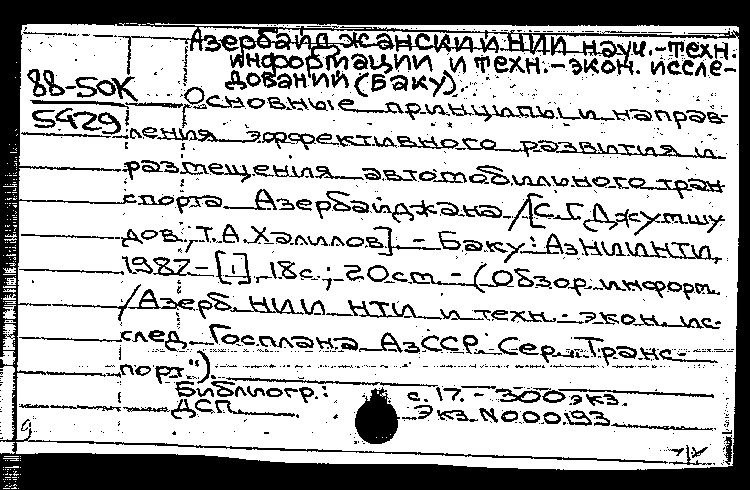 Азербайджанский НИИ науч.-техн.
информации и техн.-экон. иссле-
дований (Баку)
88-50К
5429
Основные принципы и направ-
ления эффективного развития и
размещения автомобильного тран
спорта Азербайджана /[С.Г. Джутшу
дов, Т.А. Халилов]. - Баку: АзНИИНТИ,
1987 - [1], 18с.; 20ст. - (Обзор. информ.
/Азерб. НИИ НТИ и техн.- экон. ис-
след. Госплана АзССР. Сер. "Транс-
порт").
Библиогр.: с. 17. - 300 экз.
ДСП. Экз. N000193
9